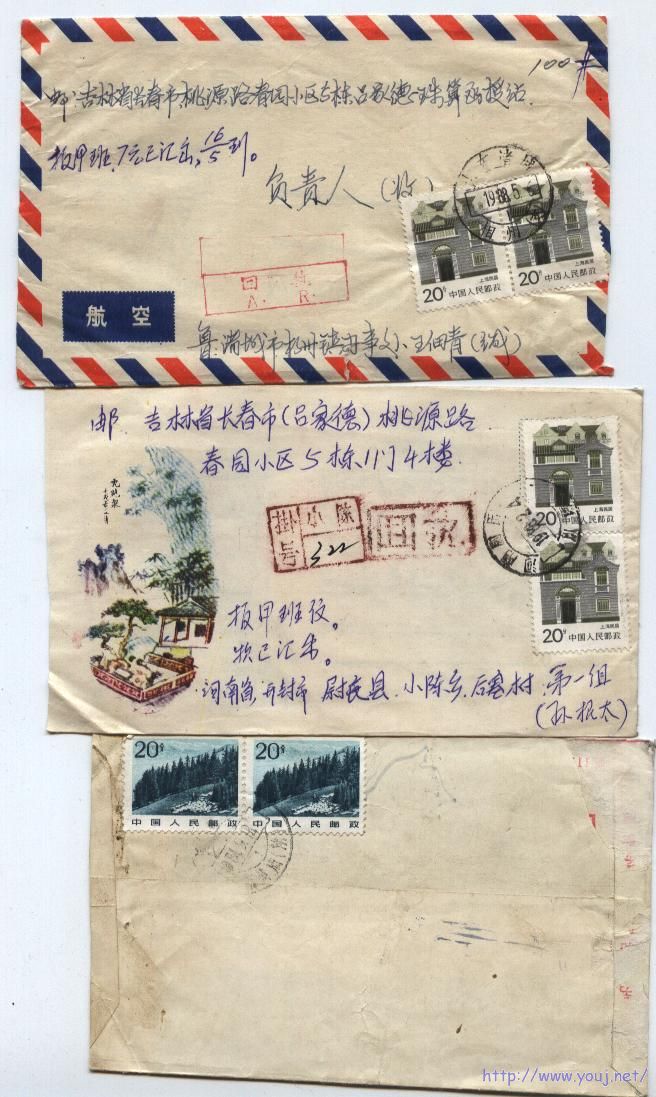 100#
邮 吉林省长春市桃源路春园小区5栋吕家德珠算函授站
板甲班,7元已汇出,16/5到。
负责人(收)
1988.5
回 执
A. R.
上海民居
20分 中国人民邮政
上海民居
20分 中国人民邮政
航 空
邮 吉林省长春市(吕家德)桃源路
春园小区5栋11门4楼
上海民居
20分 中国人民邮政
上海民居
20分 中国人民邮政
掛号 小陈
322
回执
板甲班收。
款已汇出。
河南省,开封市 尉氏县,小陈乡,后寨村,第一组
(孙根太)
20分
中国人民邮政
20分
中国人民邮政
http://www.youj.net/